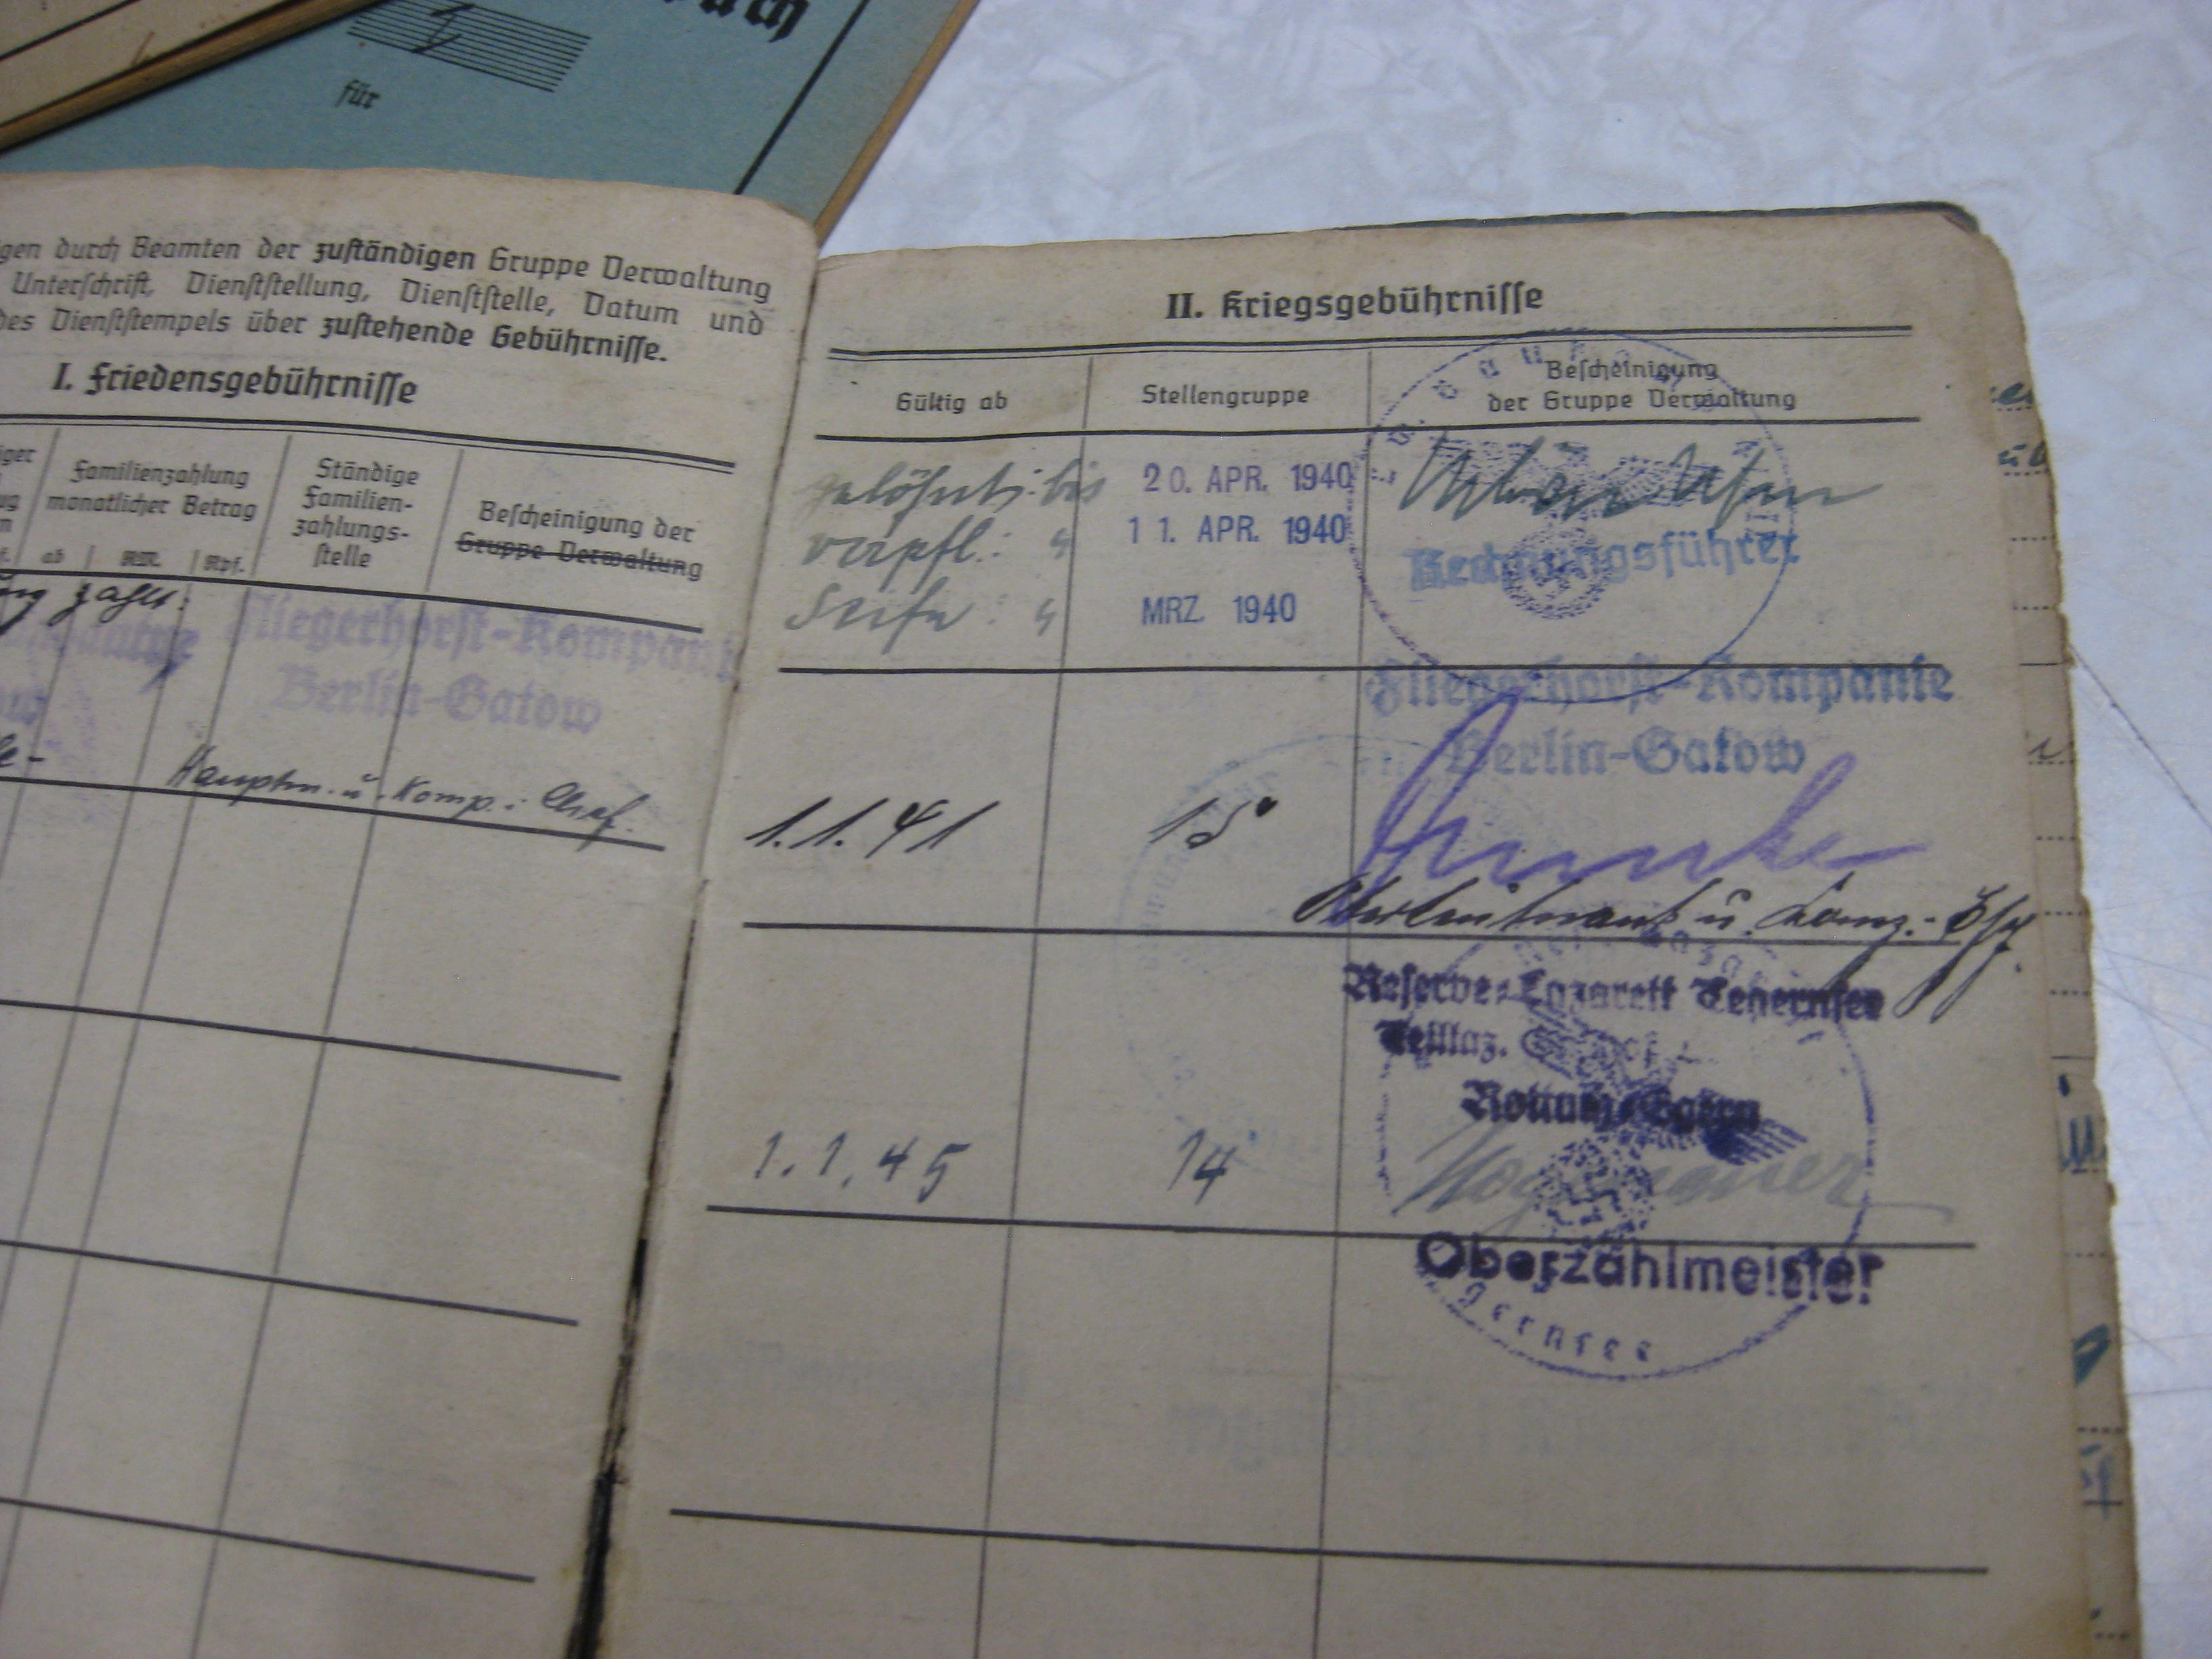 buch
für
gen durch Beamten der zuständigen Gruppe Verwaltung
Unterschrift, Dienststellung, Dienststelle, Datum und
des Dienststempels über zustehende Gebührnisse.
I. Friedensgebührnisse
Familienzahlung
monatlicher Betrag
ab RM. Rpf.
Ständige
Familien-
zahlungs-
stelle
Bescheinigung der
Gruppe Verwaltung
zahlt:
Fliegerhorst-Kompanie
Berlin-Gatow
Hauptm. u. Komp.: Chef.
II. Kriegsgebührnisse
Gültig ab
Stellengruppe
Bescheinigung
der Gruppe Verwaltung
gelöhnt: bis 20. APR. 1940
verpfl.: " 11. APR. 1940
Rechnungsführer
Seife: " MRZ. 1940
Fliegerhorst-Kompanie
Berlin-Gatow
1.1.41 15
Oberleutnant u. Komp.-Chef.
Reserve-Lazarett Tegernsee
Teillaz.
Rottach-Egern
1.1.45 14
Oberzahlmeister
gernsee